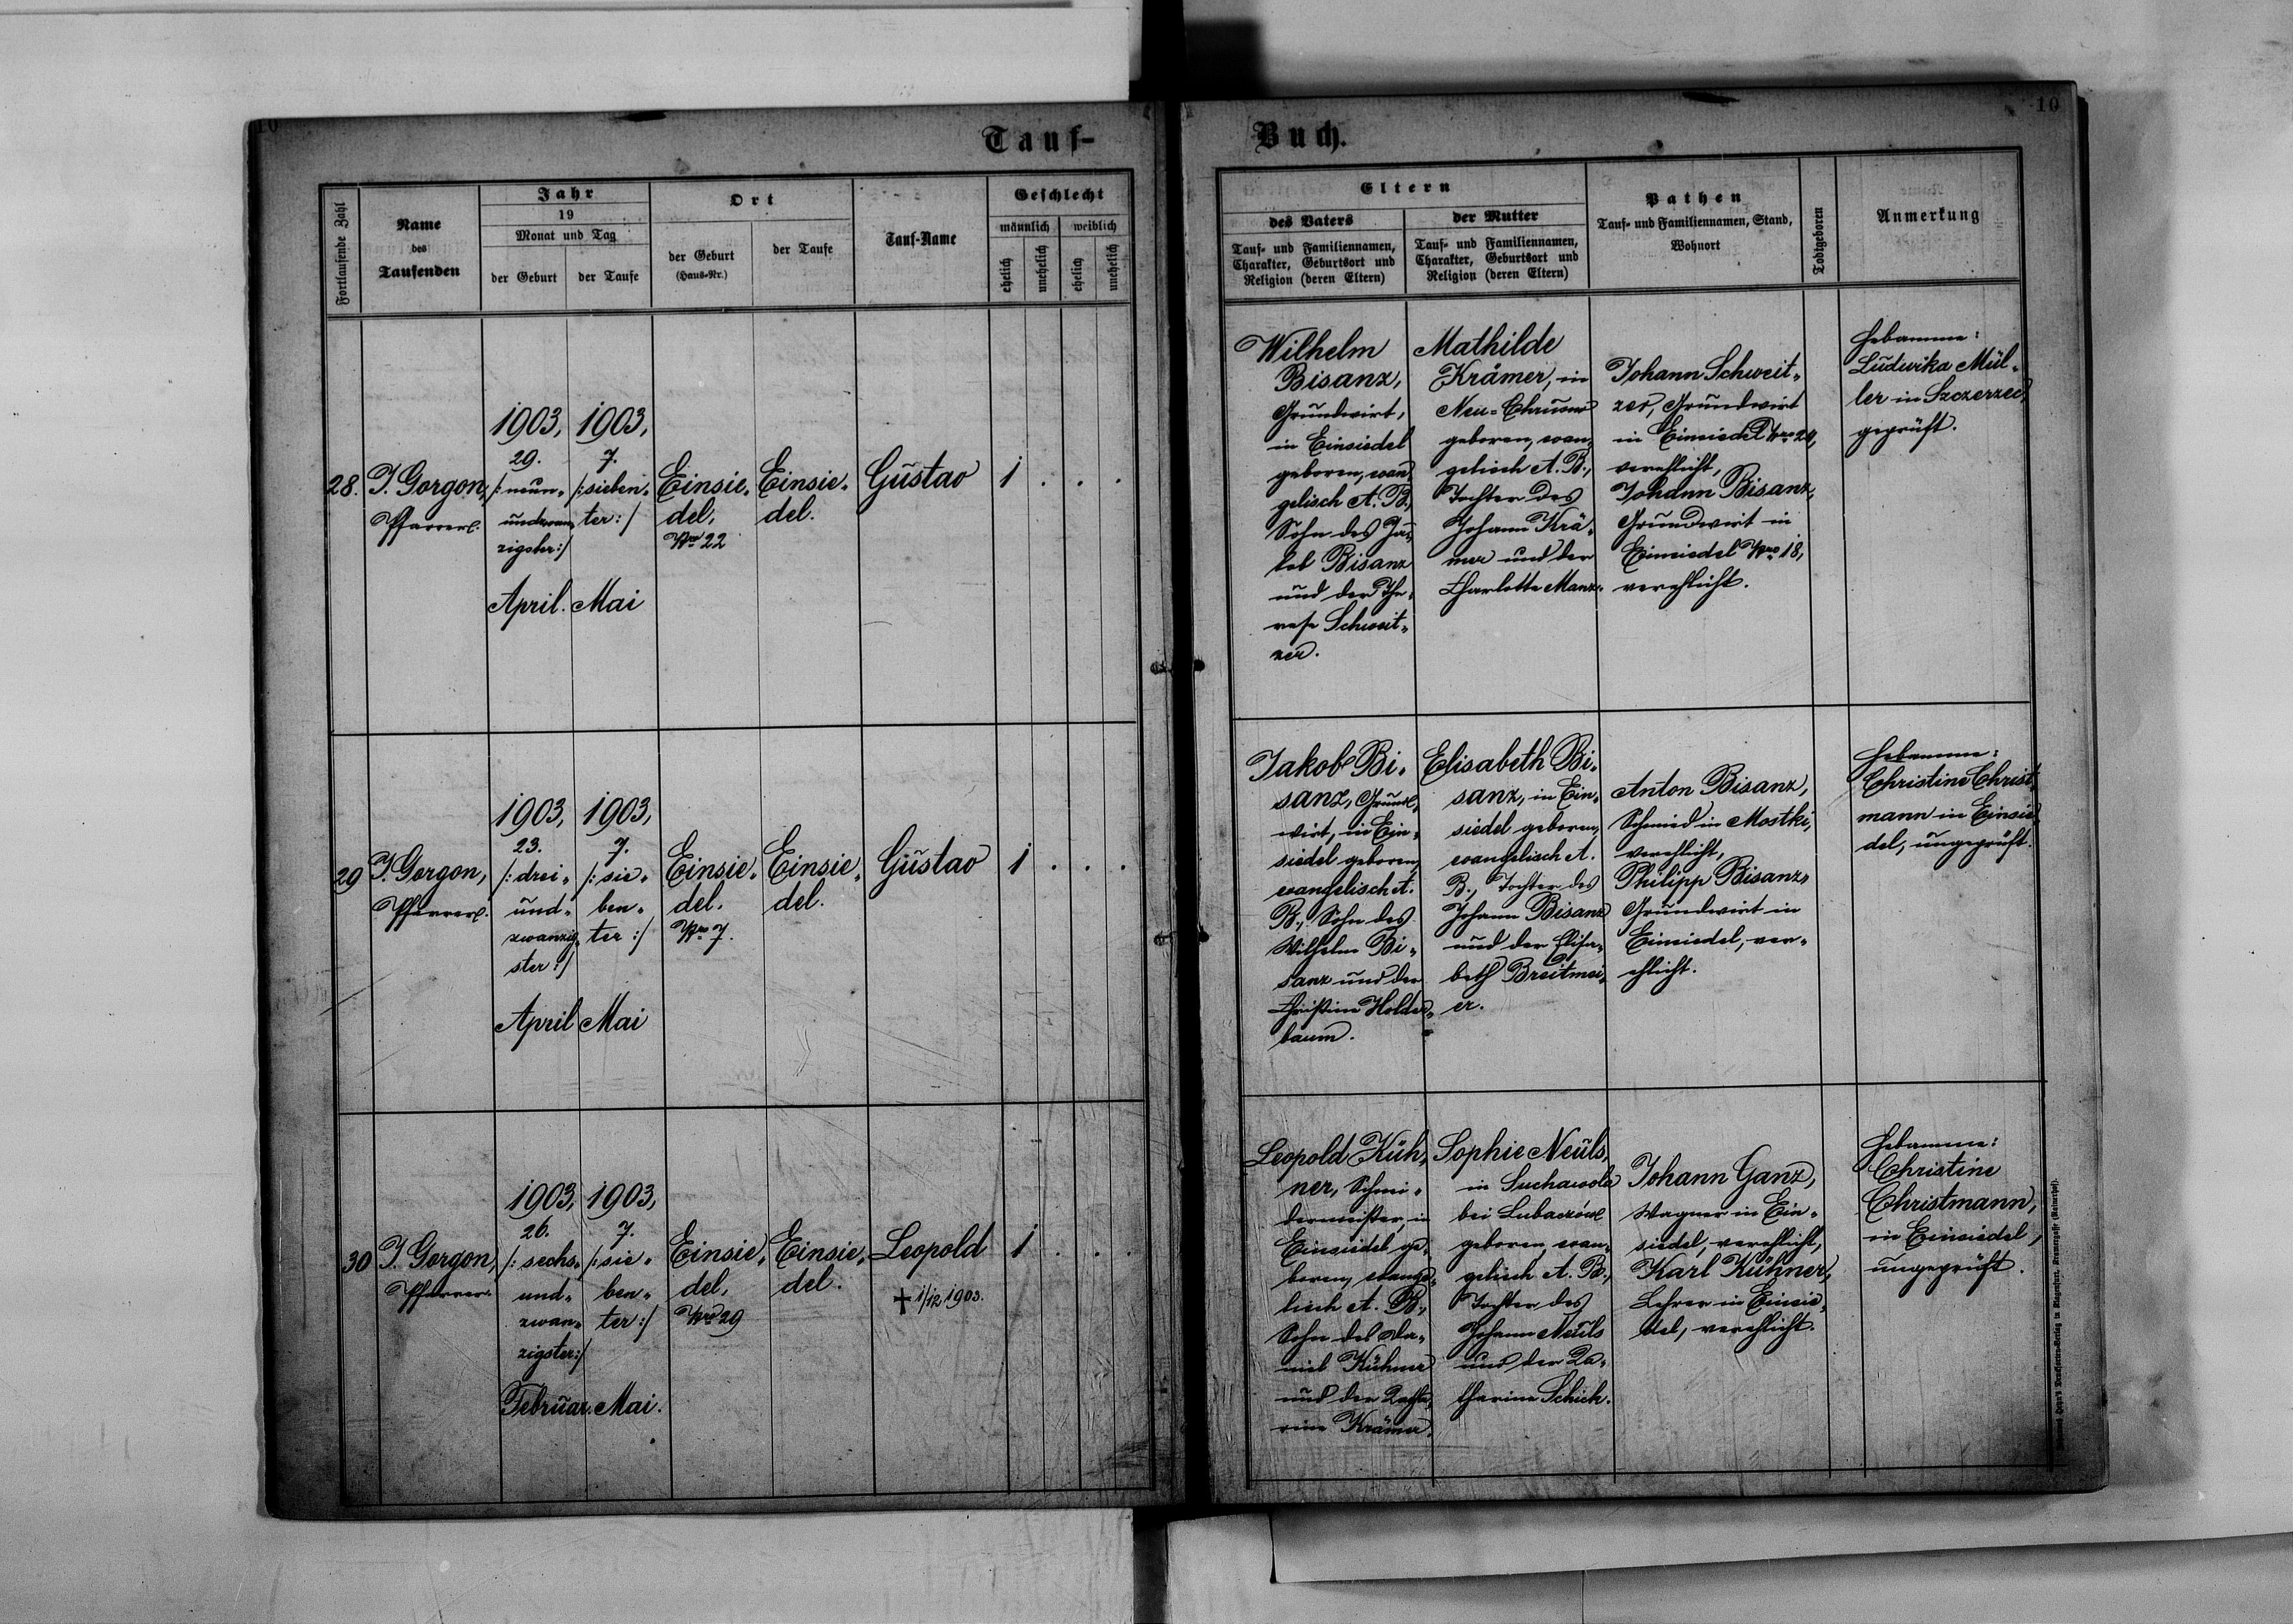 10
Tauf-
Buch.
10
Fortlaufende Zahl
Name
des
Taufenden
Jahr
19
Monat und Tag
der Geburt
der Taufe
Ort
der Geburt
(Haus-Nr.)
der Taufe
Tauf-Name
Geschlecht
männlich
weiblich
ehelich
unehelich
ehelich
unehelich
Eltern
des Vaters
Tauf- und Familiennamen,
Charakter, Geburtsort und
Religion (deren Eltern)
der Mutter
Tauf- und Familiennamen,
Charakter, Geburtsort und
Religion (deren Eltern)
Pathen
Tauf- und Familiennamen, Stand,
Wohnort
Todtgeboren
Anmerkung
28.
J. Gorgon,
Pfarrer.
1903,
29.
/: neun-
undzwan-
zigster :/
April.
1903,
7.
/: sieben-
ter :/
Mai
Einsie-
del,
Nro 22
Einsie-
del.
Gustav
1 . . .
Wilhelm
Bisanz,
Grundwirt,
in Einsiedel
geboren, evan-
gelisch A. B.,
Sohn des Ja-
kob Bisanz
und der The-
rese Schweit-
zer.
Mathilde
Krämer, in
Neu-Chrusno
geboren, evan-
gelisch A. B.,
Tochter des
Johann Krä-
mer und der
Charlotte Manz.
Johann Schweit-
zer, Grundwirt
in Einsiedel Nro 20,
verehlicht,
Johann Bisanz,
Grundwirt in
Einsiedel Nro 18,
verehlicht.
Hebamme:
Ludwika Mül-
ler in Szczerzec,
geprüft.
29
J. Gorgon,
Pfarrer.
1903,
23.
/: drei-
und-
zwanzig-
ster :/
April
1903,
7.
/: sie-
ben-
ter :/
Mai
Einsie-
del.
Nro 7.
Einsie-
del.
Gustav
1 . . .
Jakob Bi-
sanz, Grund-
wirt, in Ein-
siedel geboren,
evangelisch A.
B., Sohn des
Wilhelm Bi-
sanz und der
Christine Holder-
baum.
Elisabeth Bi-
sanz, in Ein-
siedel geboren,
evangelisch A.
B., Tochter des
Johann Bisanz
und der Elisa-
beth Breitmei-
er.
Anton Bisanz,
Schmied in Mostki,
verehlicht,
Philipp Bisanz,
Grundwirt in
Einsiedel, ver-
ehlicht.
Hebamme:
Christine Christ-
mann in Einsie-
del, ungeprüft.
30
J. Gorgon,
Pfarrer.
1903,
26.
/: sechs-
und-
zwan-
zigster :/
Februar.
1903,
7.
/: sie-
ben-
ter :/
Mai.
Einsie-
del,
Nro 29
Einsie-
del.
Leopold
+ 1/12 1903.
1 . . .
Leopold Küh-
ner, Schnei-
dermeister, in
Einsiedel ge-
boren, evange-
lisch A. B.,
Sohn des Da-
niel Kühner
und der Katha-
rine Krämer.
Sophie Neuls,
in Suchawola
bei Lubaczów
geboren, evan-
gelisch A. B.,
Tochter des
Johann Neuls
und der Ka-
tharine Schick.
Johann Ganz,
Wagner in Ein-
siedel, verehlicht,
Karl Kühner,
Lehrer in Einsie-
del, verehlicht.
Hebamme:
Christine
Christmann,
in Einsiedel,
ungeprüft.